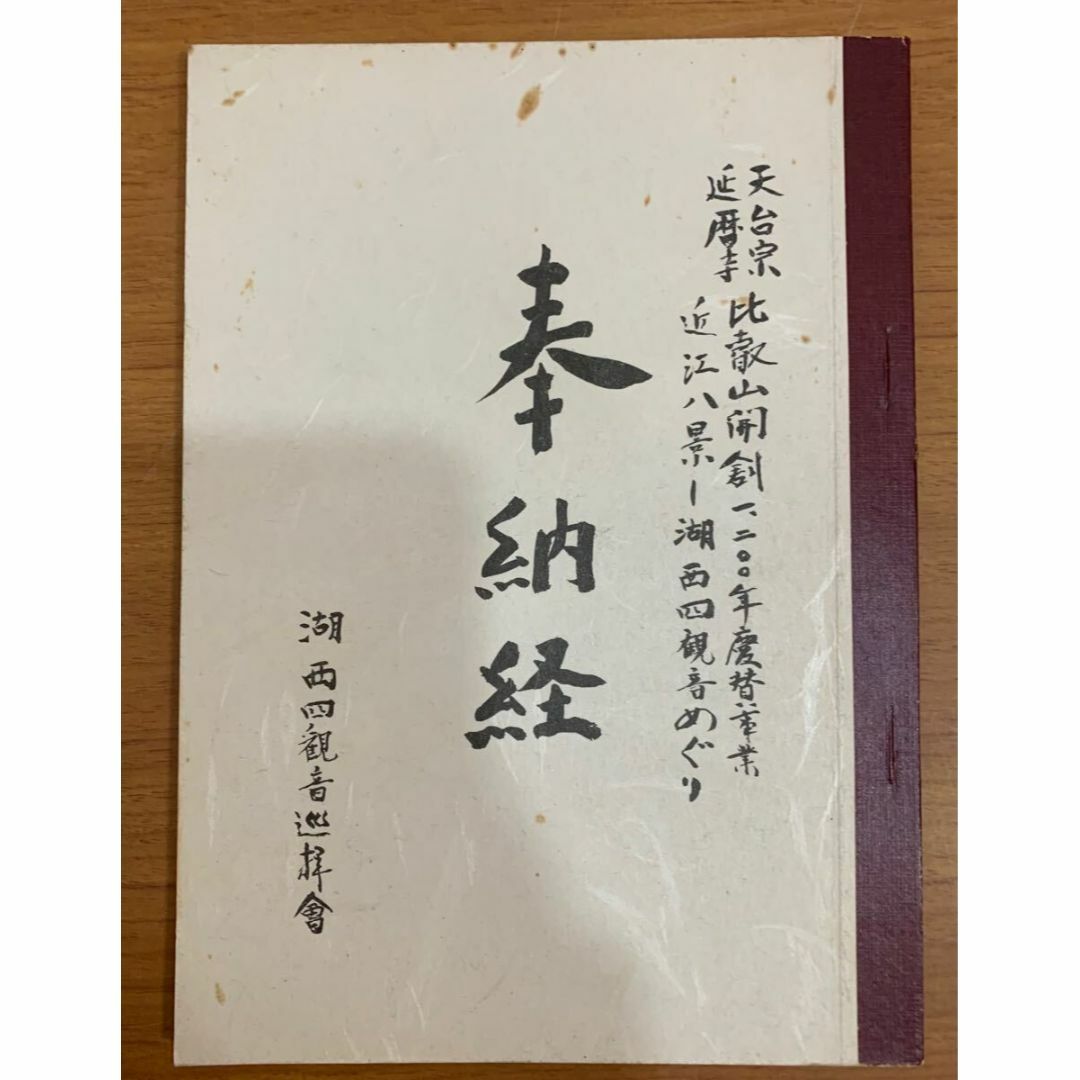 天台宗
延暦寺
比叡山開創一、二〇〇年慶賛事業
近江八景ー湖西四観音めぐり
奉納経
湖西四観音巡拝會